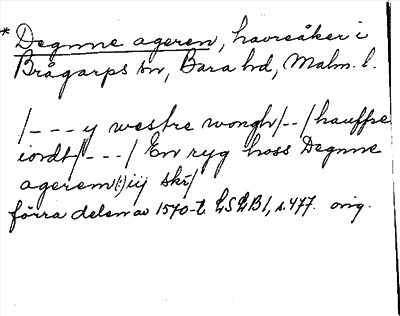 * Degnne ageren, havreåker i
Brågarps sn, Bara hd, Malm. l.
/--- y westre wongh/--/hauffre
iordt/---/ En ryg hoss Degnne
agerem(:) iij skr/
förra delen av 1570-t. LSLB1, s. 477. orig.